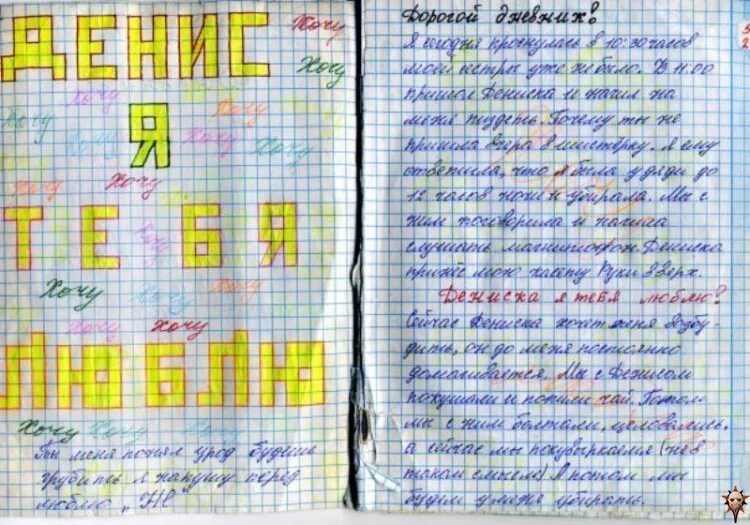 ДЕНИС
Хочу
Хочу
Хочу
Хочу
Хочу
Хочу
Хочу
Хочу
Я
Хочу
Хочу
Хочу
ТЕБЯ
Хочу
Хочу
Хочу
Хочу
Хочу
Хочу
ЛЮБЛЮ
Хочу Хочу Хочу
Ты меня понял урод будешь
грубить я накажу перед
люблю „НЕ"
Дорогой дневник!
Я сегодня проснулась в 10:30 часов
моей сестры уже не было. В 11.00
пришол Дениска и начил на
меня пиздеть. Почему ты не
пришла вчера в шестёрку. Я ему
ответила, что я была у дяди до
12 часов ночи и убирала. Мы с
ним поговорила и начила
слушать магнитофон. Дениска
принёс мою касету Руки вверх.
Дениска я тебя люблю!
Сейчас Дениска хочет меня возбу-
дить, он до меня постоянно
домагивается. Мы с Денисом
покушали и попили чай. Потом
мы с ним болтали, целовались.
а сейчас мы покувыркаемся (не в
таком смысле) А потом мы
будем у меня убирать.